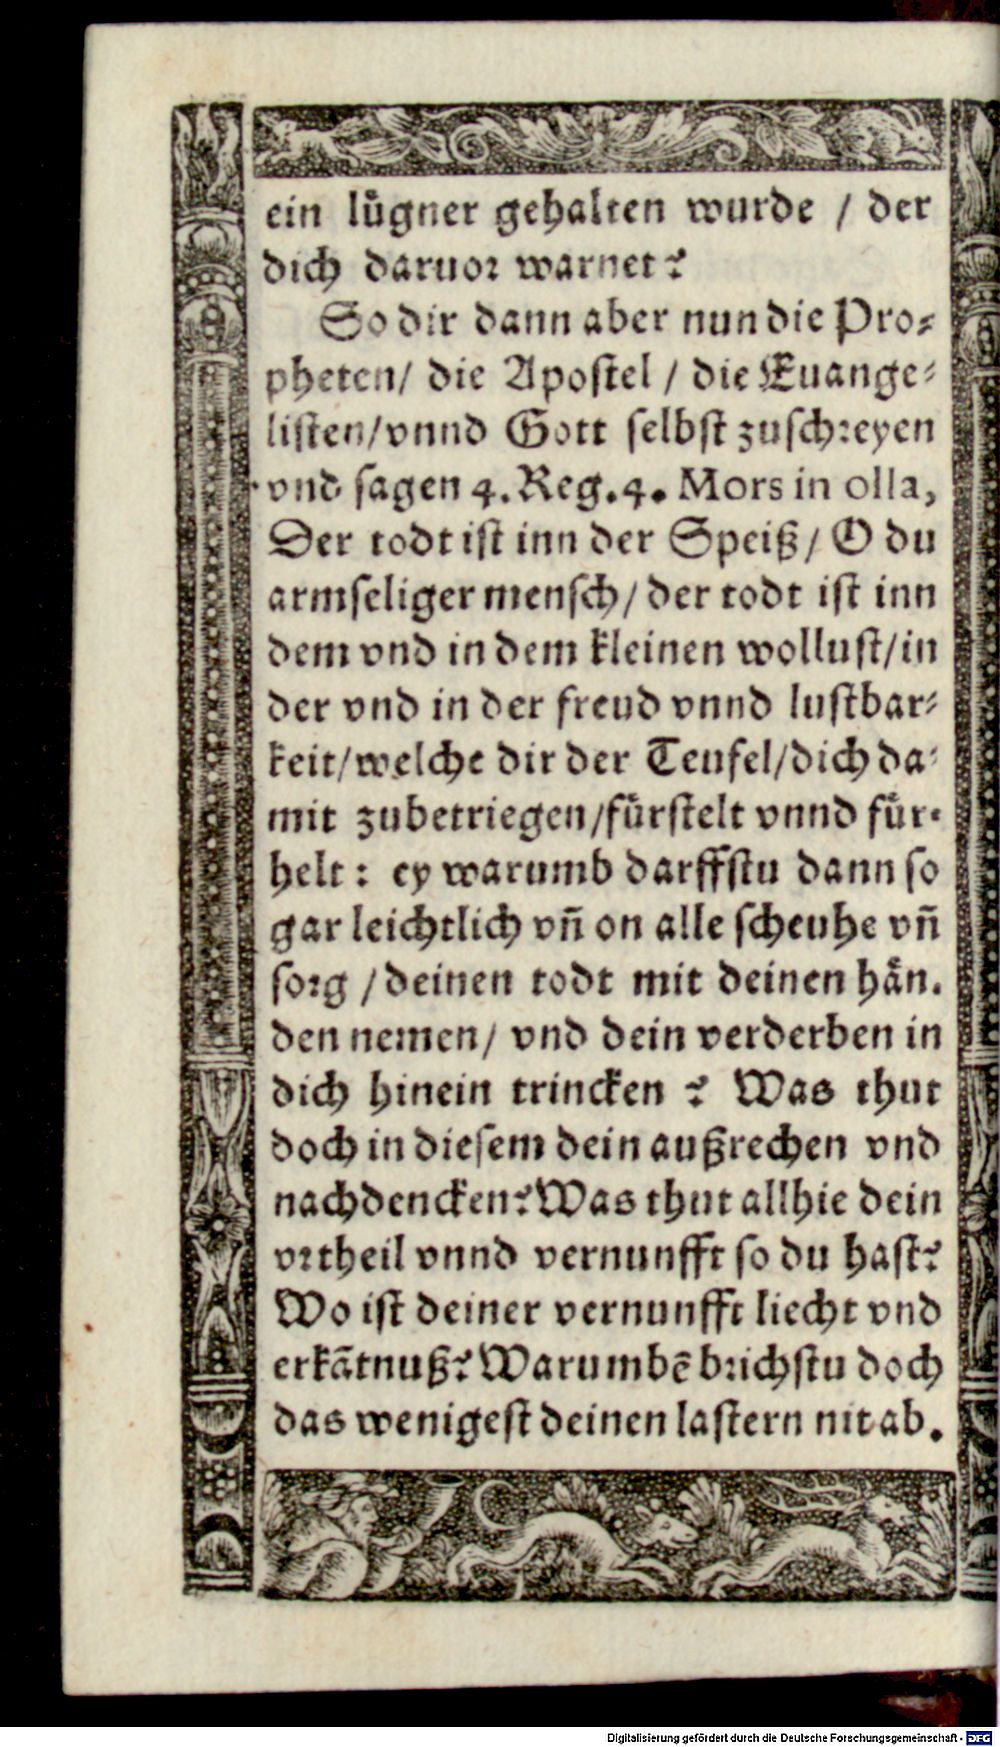 ein lůgner gehalten wurde / der
dich daruor warnet?
So dir dann aber nun die Pro⸗
pheten/ die Apostel / die Euange⸗
listen/vnnd Gott selbst zuschreyen
vnd sagen 4. Reg. 4. Mors in olla,
Der todt ist inn der Speiß/ O du
armseliger mensch/ der todt ist inn
dem vnd in dem kleinen wollust/in
der vnd in der freud vnnd lustbar⸗
keit/welche dir der Teufel/dich da⸗
mit zubetriegen/fůrstelt vnnd fůr⸗
helt: ey warumb darffstu dann so
gar leichtlich vñ on alle scheuhe vñ
sorg / deinen todt mit deinen hån.
den nemen/ vnd dein verderben in
dich hinein trincken ? Was thut
doch in diesem dein außrechen vnd
nachdencken? Was thut allhie dein
vrtheil vnnd vernunfft so du hast?
Wo ist deiner vernunfft liecht vnd
erkãtnuß? Warumbẽ brichstu doch
das wenigest deinen lastern nit ab.
Digitalisierung gefördert durch die Deutsche Forschungsgemeinschaft - DFG